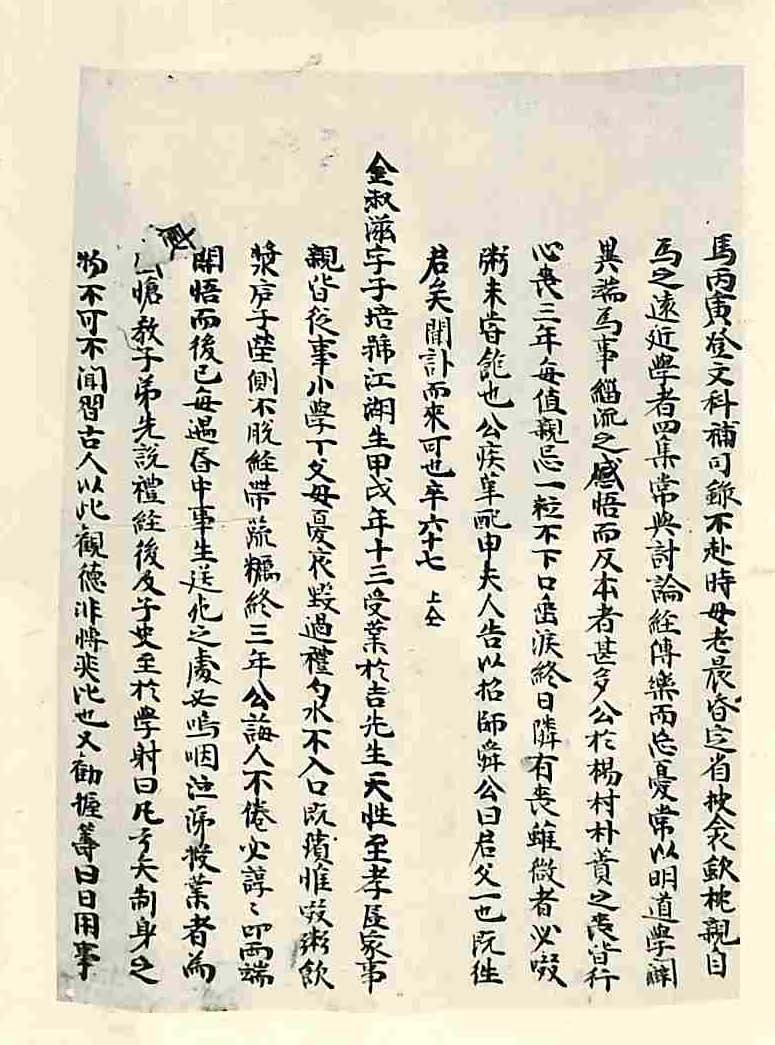 焉丙寅登文科補司錄不赴時母老晨昏定省扱衾歛枕親自
爲之遠近學者四集常與討論經傳樂而忘憂常以明道學闢
異端爲事緇流之感悟而反本者甚多公於楊村朴蕡之喪皆行
心喪三年每値親忌一粒不下口垂淚終日隣有喪雖微者必啜
粥未嘗飽也公疾革配申夫人告以招師舜公曰君父一也旣徃
君矣聞訃而來可也卒六十七 上仝
金叔滋字子培號江湖生甲戌年十三受業於吉先生天性至孝居家事
親皆從事小學丁父母憂哀毁過禮勺水不入口旣殯惟啜粥飮
漿庐于塋側不脫絰帶蔬糲終三年公誨人不倦必諄〻叩兩端
開悟而後已每遇居中事生送死之處必嗚咽泣涕授業者爲
愴敎子弟先說禮經後及子史至於學射曰凡弓矢制身之
物不可不閒習古人以此觀德非愽奕比也又勸握筭曰日用事